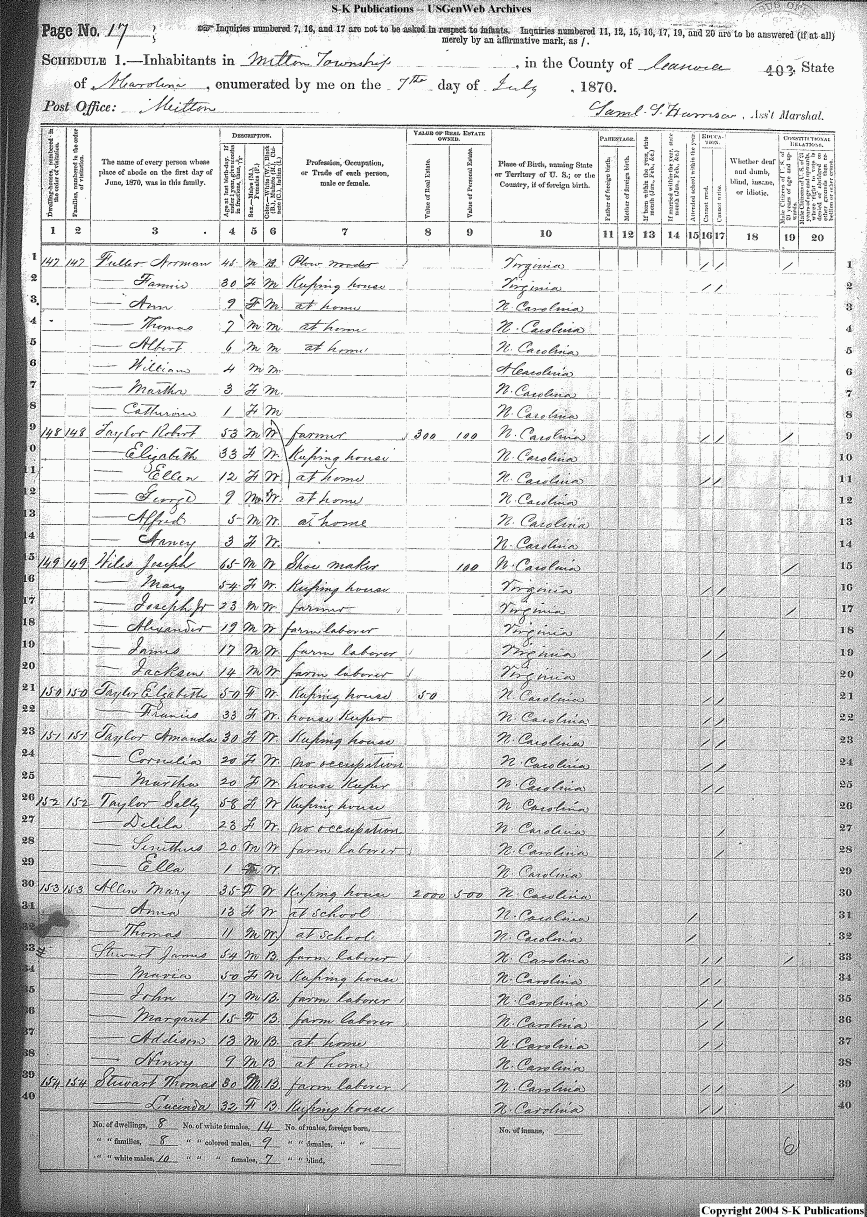 S-K Publications -- USGenWeb Archives
Page No. 17
Inquiries numbered 7, 16, and 17 are not to be asked in respect to infants. Inquiries numbered 11, 12, 15, 16, 17, 19, and 20 are to be answered (if at all) merely by an affirmative mark, as /.
SCHEDULE 1.—Inhabitants in Milton Township, in the County of Caswell 403, State
of N Carolina, enumerated by me on the 7th day of July, 1870.
Post Office: Milton
Saml. S. Harrison, Ass't Marshal.
Dwelling-houses, numbered in the order of visitation. Families, numbered in the order of visitation. The name of every person whose place of abode on the first day of June, 1870, was in this family. DESCRIPTION. Profession, Occupation, or Trade of each person, male or female. VALUE OF REAL ESTATE OWNED. Value of Real Estate. Value of Personal Estate. Place of Birth, naming State or Territory of U. S.; or the Country, if of foreign birth. PARENTAGE. Father of foreign birth. Mother of foreign birth. Attended school within the year. EDUCATION. Cannot read. Cannot write. Whether deaf and dumb, blind, insane, or idiotic. CONSTITUTIONAL RELATIONS.
1 2 3 4 5 6 7 8 9 10 11 12 13 14 15 16 17 18 19 20
1 147 147 Fuller 45 M B Virginia / / / 1
2 — Fannie 30 F M Keeping house Virginia / / 2
3 — Ann 9 F M at home N. Carolina 3
4 — Thomas 7 M M at home N. Carolina 4
5 — Albert 6 M M at home N. Carolina 5
6 — William 4 M M N Carolina 6
7 — Martha 3 F M N. Carolina 7
8 — Catherine 1 F M N. Carolina 8
9 148 148 Taylor Robert 53 M W farmer 300 100 N. Carolina / / / 9
10 — Elizabeth 33 F W Keeping house N. Carolina 10
11 — Ellen 12 F W at home N. Carolina / / 11
12 — George 9 M W at home N. Carolina 12
13 — Alfred 5 M W at home N. Carolina 13
14 — Nancy 3 F W N. Carolina 14
15 149 149 Wiles Joseph 65 M W Shoe maker 100 N. Carolina / 15
16 — Mary 54 F W Keeping house Virginia / / 16
17 — Joseph Jr 23 M W farmer Virginia / 17
18 — Alexander 19 M W farm laborer Virginia / 18
19 — James 17 M W farm laborer Virginia / / 19
20 — Jackson 14 M W farm laborer Virginia 20
21 150 150 Taylor Elizabeth 50 F W Keeping house 50 N. Carolina / / 21
22 — Francis 33 F W house Keeper N. Carolina / / 22
23 151 151 Taylor Amanda 30 F W Keeping house N. Carolina / / 23
24 — Cornelia 20 F W no occupation N. Carolina / / 24
25 — Martha 20 F W house Keeper N. Carolina / / 25
26 152 152 Taylor Sally 58 F W Keeping house N Carolina 26
27 — Delila 23 F W no occupation N Carolina / 27
28 — 20 M W farm laborer N. Carolina / 28
29 — Ella 1 F W N. Carolina 29
30 153 153 Allen Mary 35 F W Keeping house 2000 500 N Carolina 30
31 — Anna 13 F W at school N. Carolina / 31
32 — Thomas 11 M W at school N. Carolina / 32
33 Stewart James 54 M B farm laborer N. Carolina / / / 33
34 — Maria 50 F M Keeping house N. Carolina / / 34
35 — John 17 M B farm laborer N. Carolina / / 35
36 — Margaret 15 F B farm laborer N. Carolina / / 36
37 — Addison 13 M B at home N. Carolina / / 37
38 — Henry 9 M B at home N. Carolina 38
39 154 154 Stewart Thomas 30 M B farm laborer N. Carolina / / / 39
40 Lucinda 32 F B Keeping house N. Carolina / / 40
No. of dwellings, 8 No. of white females, 14 No. of males, foreign born, No. of insane,
" " families, 8 " " colored males, 9 " " females, " "
" " white males, 10 " " " females, 7 " " blind,
6
Copyright 2004 S-K Publications